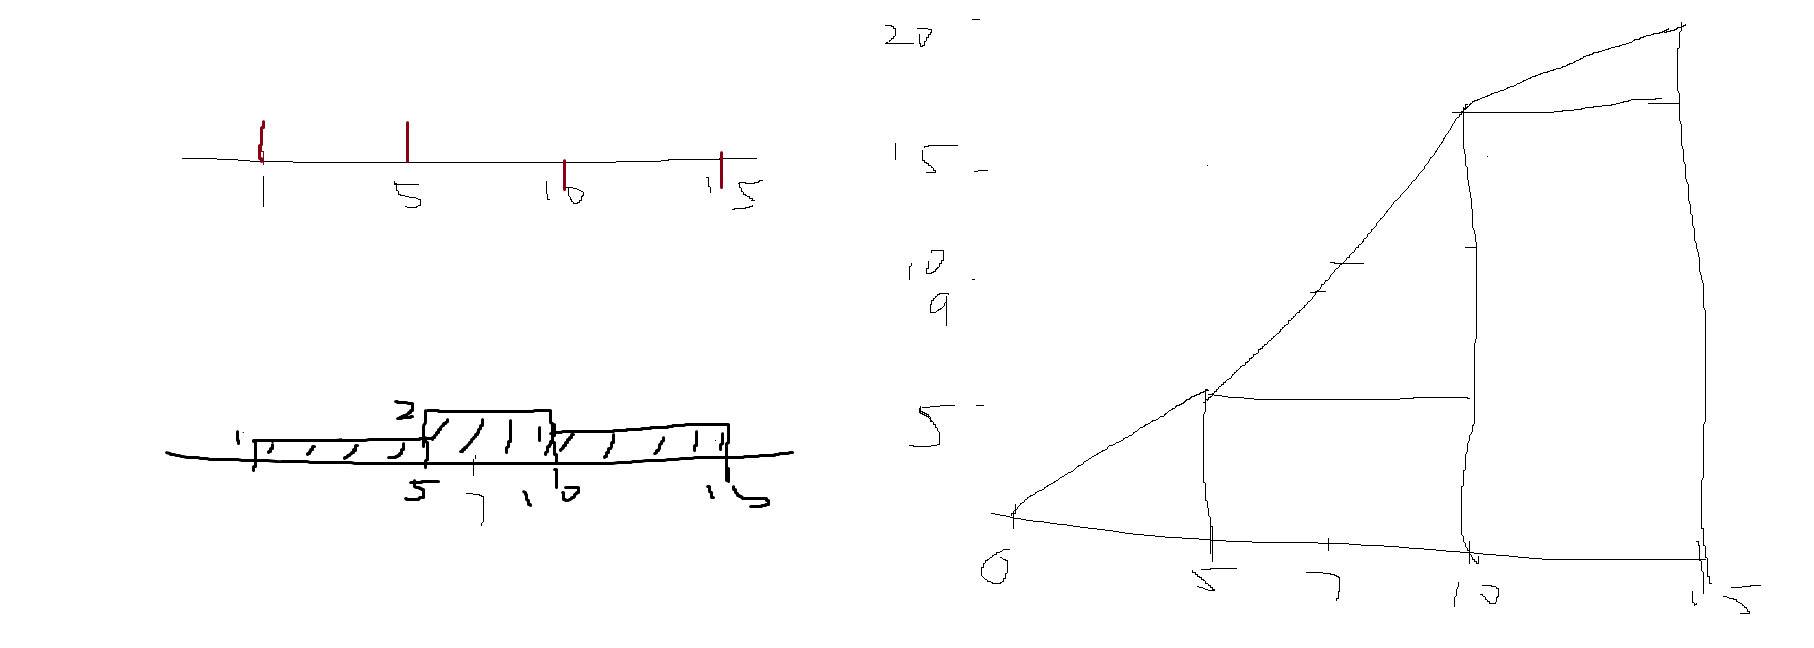 1 5 10 15
1 2
5 7 10 15
20
15
10
9
5
0 5 7 10 15